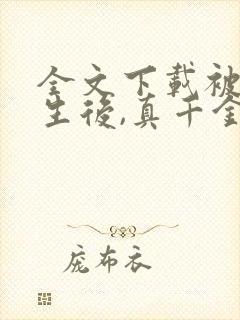 全文下載被
生後,真千金
庞布衣